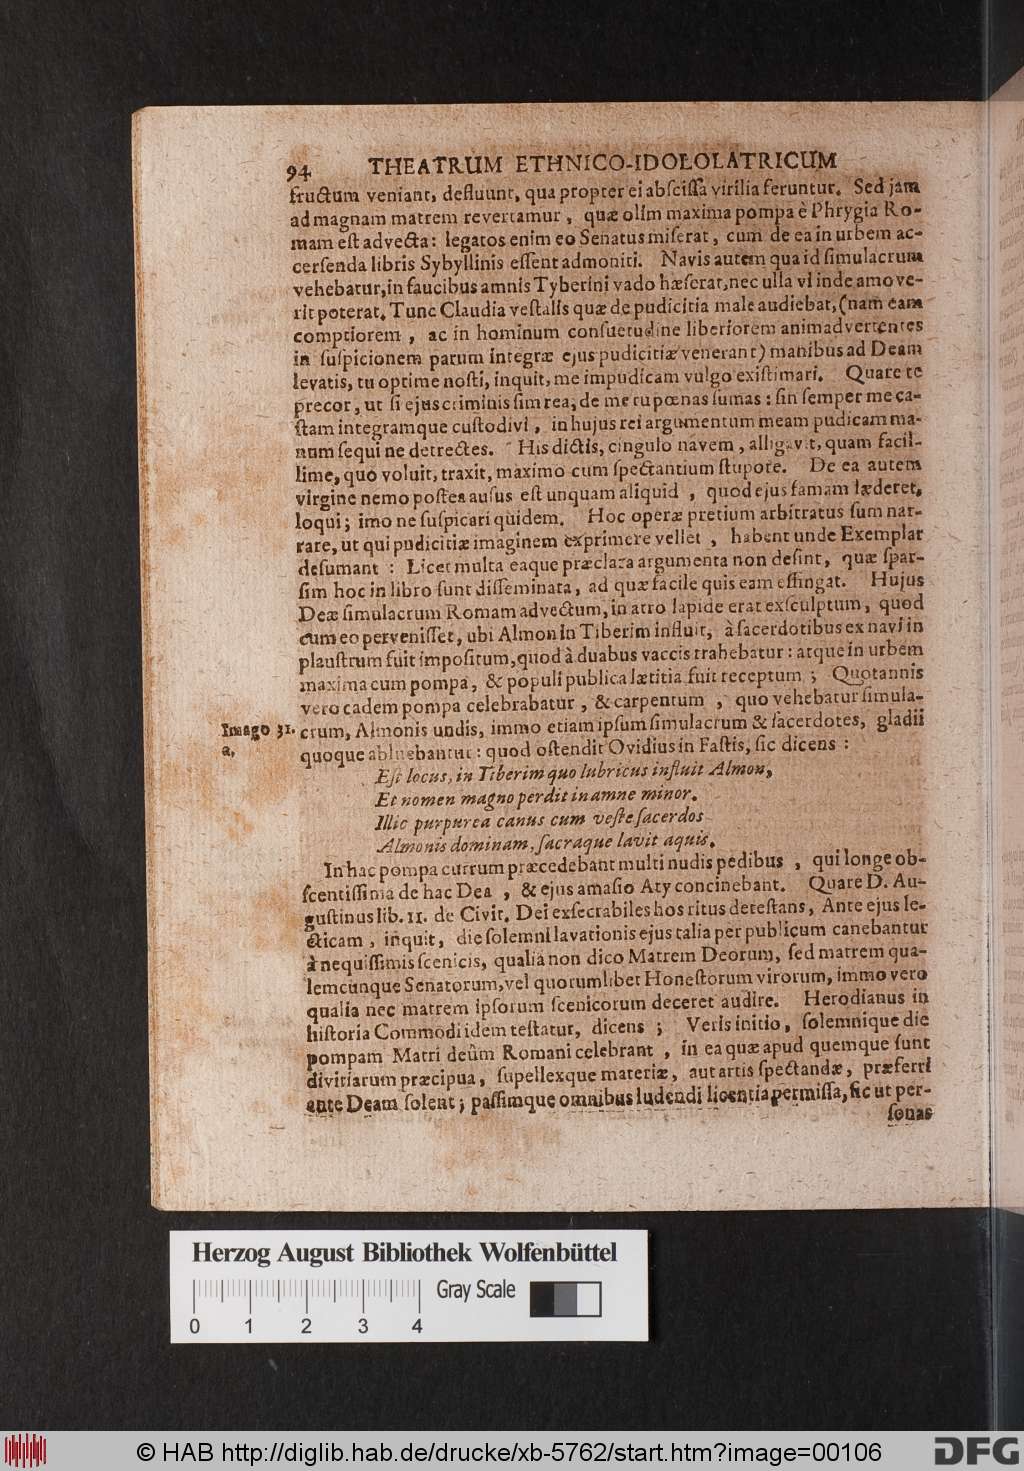 94 THEATRUM ETHNICO-IDOLOLATRICUM
fructum veniant, defluunt, qua propter ei abſciſſa virilia feruntur. Sed jam
ad magnam matrem revertamur, quæ olim maxima pompa è Phrygia Ro-
mam eſt advecta: legatos enim eo Senatus miſerat, cum de ea in urbem ac-
cerſenda libris Sybyllinis eſſent admoniti. Navis autem qua id ſimulacrum
vehebatur, in faucibus amnis Tyberini vado hæſerat, nec ulla vi inde amove-
rit poterat. Tunc Claudia veſtalis quæ de pudicitia male audiebat, (nam eam
comptiorem, ac in hominum conſuetudine liberiorem animadvertentes
in ſuſpicionem parum integræ ejus pudicitiæ venerant) manibus ad Deam
levatis, tu optime noſti, inquit, me impudicam vulgo exiſtimari. Quare te
precor, ut ſi ejus criminis ſim rea, de me tu pœnas ſumas: ſin ſemper me ca-
ſtam integramque cuſtodivi, in hujus rei argumentum meam pudicam ma-
num ſequi ne detrectes. His dictis, cingulo navem, alligavit, quam facil-
lime, quo voluit, traxit, maximo cum ſpectantium ſtupore. De ea autem
virgine nemo poſtea auſus eſt unquam aliquid, quod ejus famam læderet,
loqui; imo ne ſuſpicari quidem. Hoc operæ pretium arbitratus ſum nar-
rare, ut qui pudicitiæ imaginem exprimere vellet, habent unde Exemplar
deſumant: Licet multa eaque præclara argumenta non deſint, quæ ſpar-
ſim hoc in libro ſunt diſſeminata, ad quæ facile quis eam effingat. Hujus
Deæ ſimulacrum Romam advectum, in atro lapide erat exſculptum, quod
cum eo perveniſſet, ubi Almon in Tiberim influit, à ſacerdotibus ex navi in
plauſtrum fuit impoſitum, quod à duabus vaccis trahebatur: atque in urbem
maxima cum pompa, & populi publica lætitia fuit receptum; Quotannis
vero eadem pompa celebrabatur, & carpentum, quo vehebatur ſimula-
Imago 31. crum, Almonis undis, immo etiam ipſum ſimulacrum & ſacerdotes, gladii
a. quoque abluebantur: quod oſtendit Ovidius in Faſtis, ſic dicens:
Eſt locus, in Tiberim quo lubricus influit Almon,
Et nomen magno perdit in amne minor.
Illic purpurea canus cum veſte ſacerdos
Almonis dominam, ſacraque lavit aquis.
In hac pompa currum præcedebant multi nudis pedibus, qui longe ob-
ſcentiſſima de hac Dea, & ejus amaſio Aty concinebant. Quare D. Au-
guſtinus lib. 11. de Civit. Dei exſecrabiles hos ritus deteſtans, Ante ejus le-
cticam, inquit, die ſolemni lavationis ejus talia per publicum canebantur
à nequiſſimis ſcenicis, qualia non dico Matrem Deorum, ſed matrem qua-
lemcunque Senatorum, vel quorumlibet Honeſtorum virorum, immo vero
qualia nec matrem ipſorum ſcenicorum deceret audire. Herodianus in
hiſtoria Commodi idem teſtatur, dicens; Veris initio, ſolemnique die
pompam Matri deûm Romani celebrant, in ea quæ apud quemque ſunt
divitiarum præcipua, ſupellexque materiæ, aut artis ſpectandæ, præferri
ante Deam ſolent; paſſimque omnibus ludendi licentia permiſſa, ſic ut per-
ſonas
Herzog August Bibliothek Wolfenbüttel
Gray Scale
0 1 2 3 4
© HAB http://diglib.hab.de/drucke/xb-5762/start.htm?image=00106
DFG